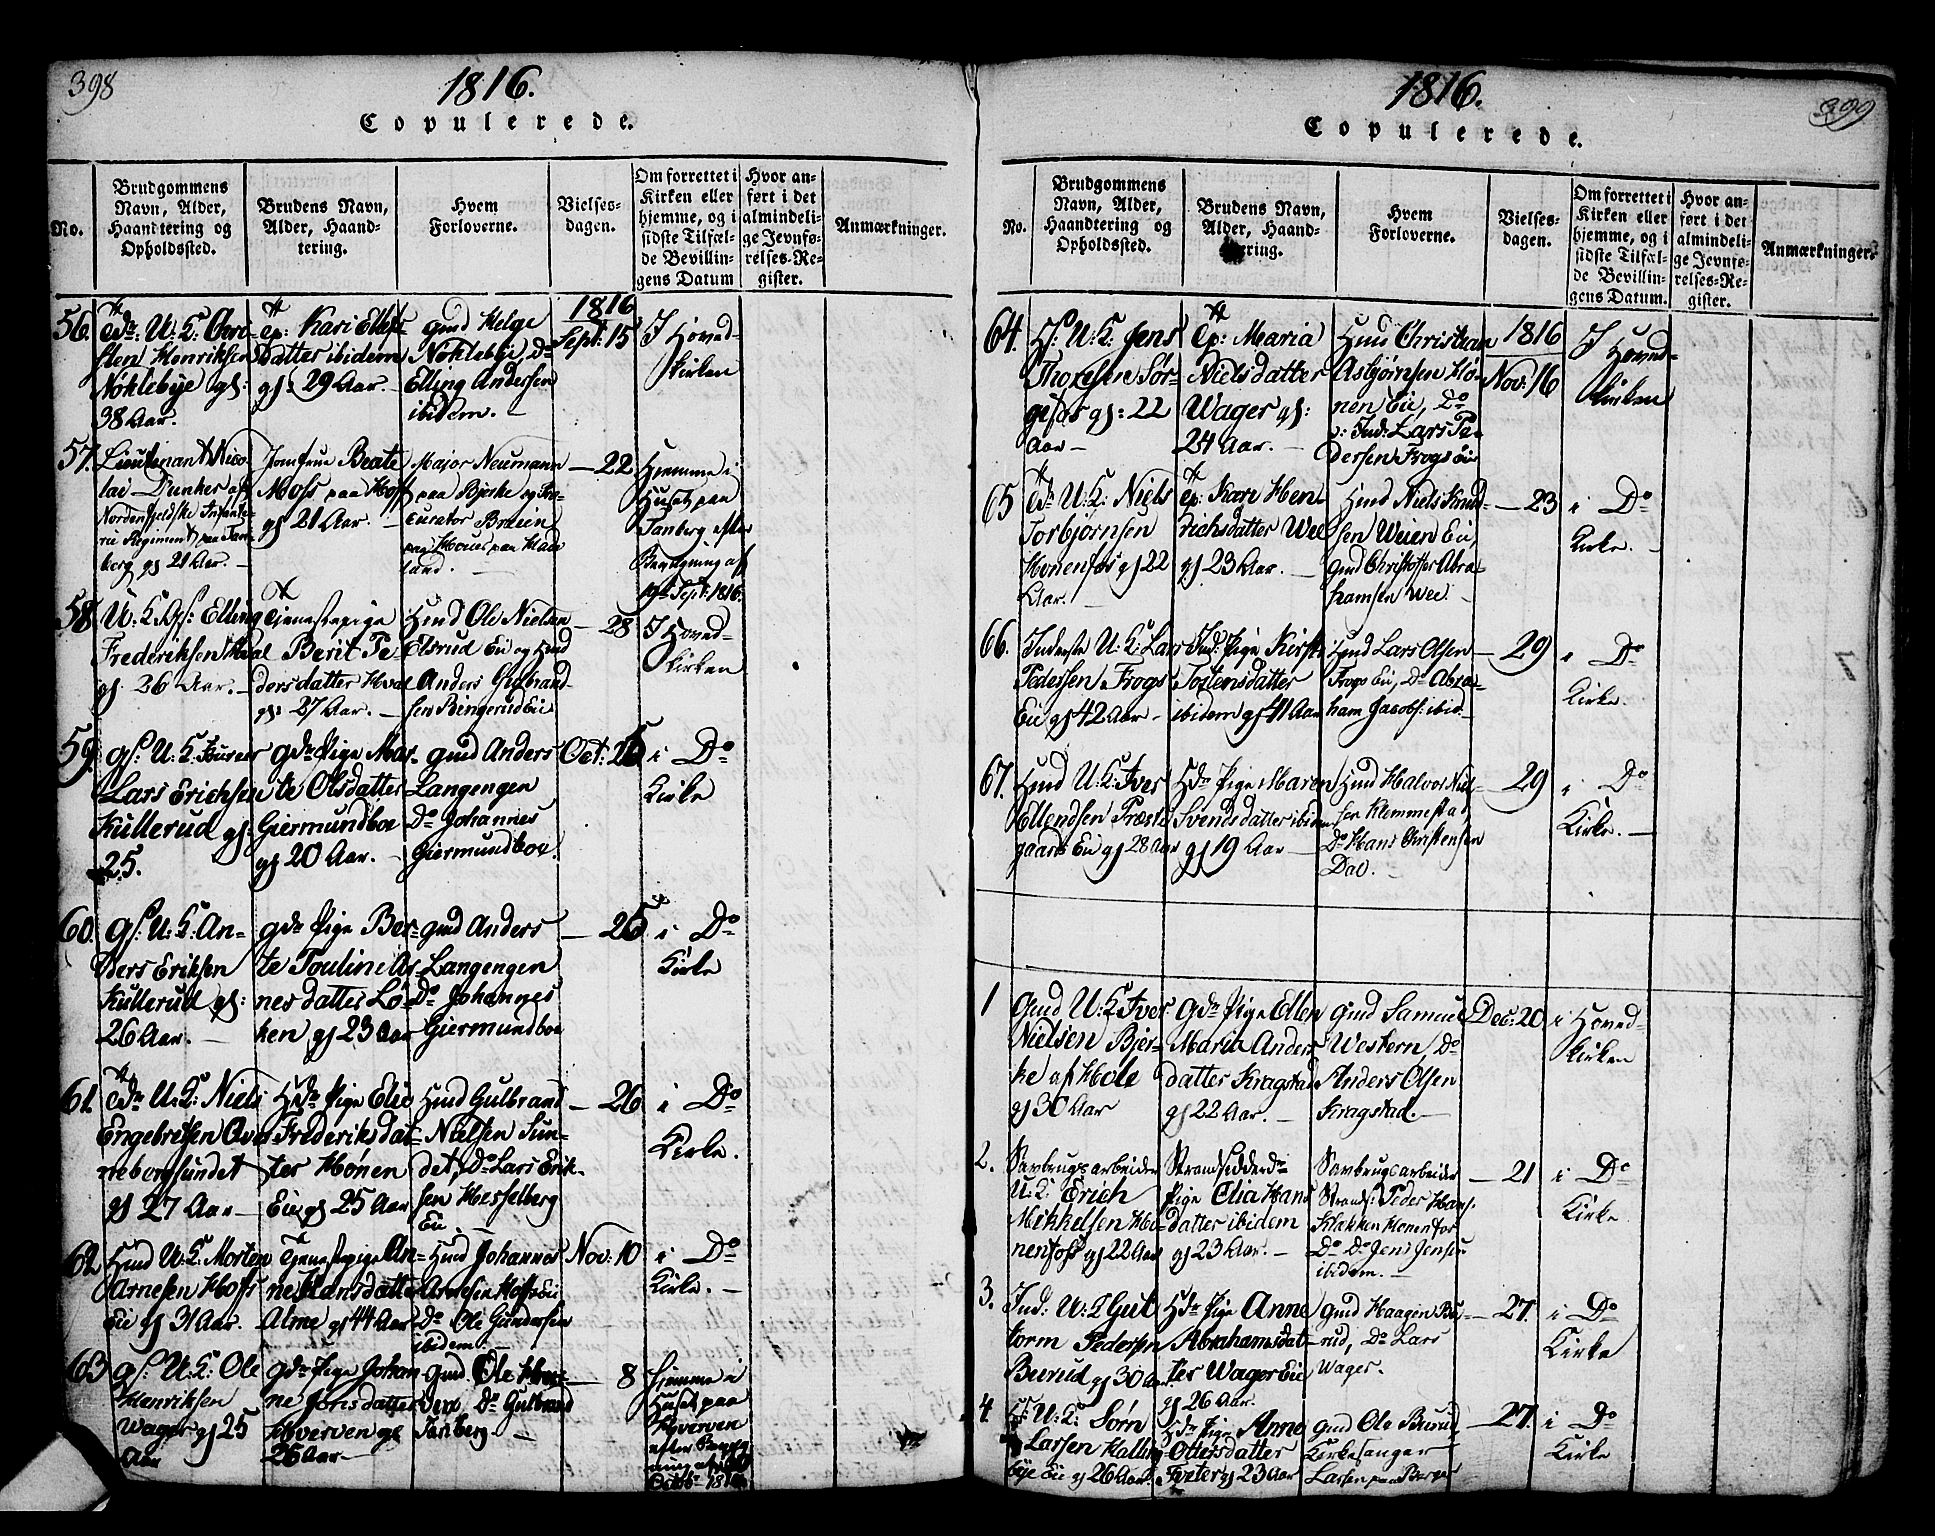 398
1816.
Copulerede.
No.
Brudgommens
Navn, Alder,
Haandtering og
Opholdssted.
Brudens Navn,
Alder, Haand-
tering.
Hvem
Forloverne.
Vielses-
dagen.
Om forrettet i
Kirken eller
hjemme, og i
sidste Tilfæl-
de Bevillin-
gens Datum
Hvor an-
ført i det
almindeli-
ge Jevnfø-
relses-Re-
gister.
Anmærkninger.
56.
U: K: Chri-
sten Henriksen
Nøklebye gl:
38 Aar.
Kari Ellefs
datter ibidem
gl: 29 Aar.
gmd Helge
Nøklebye, Do
Elling Andersen
ibidem.
1816
Sept: 15
I Hoved-
kirken
57.
Lieutenant Nico-
lai Dunker af
Nordenfjeldske Infante-
rie Regiment paa Tan-
berg gl 21 Aar.
Jomfrue Beate
Moss paa Hoff
gl 21 Aar.
Major Neumann
paa Bjerke og Pro-
curator Breien
paa Hade
land.
22
Hjemme i
Huset paa
Tanberg efter
Bevilgning af
Sept: 1816.
58.
U: K. Gf: Elling
Frederiksen Hval
gl. 26 Aar.
Tjenestepige
Berit Pe-
dersdatter Hval
gl: 27 Aar.
Hmd Ole Nielsen
Elsrud Eie og Hmd
Anders Gulbrand-
sen Bengerud Eie
28
I Hoved-
kirken
59.
gf: U: K:
Lars Erichsen
Kullerud gl:
25.
gdr Pige Mar-
te Olsdatter
Giermundboe
gl 20 Aar.
gmd Anders
Langengen
Do Johannes
Giermundboe.
Oct: 25
i Do
Kirke
60.
gf: U: K: An-
ders Eriksen
Kullerud gl:
26 Aar.
gdr Pige Ber-
te Pouline Ar-
nesdatter Lø-
ken gl 23 Aar
gmd Anders
Langengen
Do Johannes
Giermundboe
25
i Do
Kirke
61.
U: K: Niels
Engebretsen Øver
neborgsundet
gl 27 Aar
Hdr Pige Elie
Frederiksdat-
ter Hønen
Eie gl 25 Aar
Hmd Gulbrand
Nielsen Sun-
det, Do Lars Erik-
sen Hesselberg
Eie
26
i Do
Kirke.
62
Hmd U: K: Morten
Arnesen Hoffs
Eie gl 31 Aar.
Tjenestepige An-
ne Hansdatter
Alme gl 44 Aar
Hmd Johannes
Arnesen Hoffs Eie
Do Ole Gundersen
ibidem.
Nov: 10
i Do
Kirke.
63
gf: U: K: Ole
Henriksen
Wager gl 25
Aar
gdr Pige Johan-
ne Jonsdatter
Hverven gl
26 Aar
gmd Ole
Do Gulbrand
8
Hjemme i
Huset paa
Hverven
efter Bevilg-
1816.
399
1816.
Copulerede.
No.
Brudgommens
Navn, Alder,
Haandtering og
Opholdssted.
Brudens Navn,
Alder, Haand-
tering.
Hvem
Forloverne.
Vielses-
dagen.
Om forrettet i
Kirken eller
hjemme, og i
sidste Tilfæl-
de Bevillin-
gens Datum.
Hvor an-
ført i det
almindeli-
ge Jevnfø-
relses-Re-
gister.
Anmærkninger.
64.
Hf: U: K: Jens
Thoresen Sør-
gefos gl: 22
Aar
Tp: Maria
Nielsdatter
Wager gl:
24 Aar.
Hmd Christian
Asbjørnsen Hø-
nen Eie, Do
Ind: Lars Pe-
dersen Frogs Eie
1816
Nov: 16
I Hoved-
kirken
65
U: K: Niels
Torbjørnsen
Hønenfos gl 22
Aar.
Tp: Kari Hen-
richsdatter Wee
gl 23 Aar.
Hmd Niels Knud-
sen Weien Eie,
gmd Christoffer Abra-
hamsen Wee
23
i Do
Kirke.
66.
Inderste U: K: Lars
Pedersen Frogs
Eie gl 42 Aar
Ind: Pige Kirsti
Tostensdatter
ibidem gl 41 Aar
Hmd Lars Olsen
Frogs Eie, Do Abra-
ham Jacobs: ibid
29
i Do
Kirke.
67.
Hmd U: K: Iver
Ellendsen Præste
gaards Eie gl 28 Aar
Hdr Pige Maren
Svendsdatter ibidem
gl 19 Aar
Hmd Halvor Niel-
sen Klemmestad
Do Hans Christensen
Dal.
29
i Do
Kirke.
1
Gmd U: K: Iver
Nielsen Bjer-
ke af Hole
gl 30 Aar
Gdr Pige Ellen
Maria Anders
datter Kragstad
gl 22 Aar.
gmd Samuel
Western, Do
Anders Olsen
Kragstad.
Dec: 20
i Hoved-
kirken
2.
Savbrugsarbeider
U: K: Erich
Mikkelsen Hø-
nenfoss gl 22 Aar
Strandsidderdr
Pige Elia Hans
datter ibidem
gl 23 Aar.
Savbrugsarbeider
Strands: Peder Hans:
Klækken Hønenfos
Do Do Jens Jensen
ibidem.
21
i Do
Kirke
3.
Ind: U: K Gut
torm Pedersen
Burud gl 30 Aar
Hdr Pige Anne
Abrahamsdat-
ter Wager Eie
gl 26 Aar.
gmd Haagen Bu-
rud, Do Lars
Wager.
27.
i Do
Kirke
4.
U: K: Sørn
Larsen Halling
bye Eie gl 26 Aar.
Hdr Pige Anne
Ottersdatter
Tveter gl 23 Aar
gmd Ole Burud
Kirkesanger
Larsen paa Berger
27.
i Do
Kirke